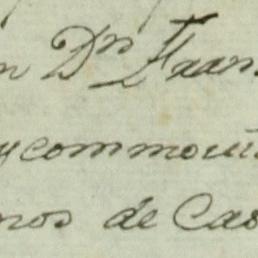 n Dⁿ Fran
y commovi
nos de Cas